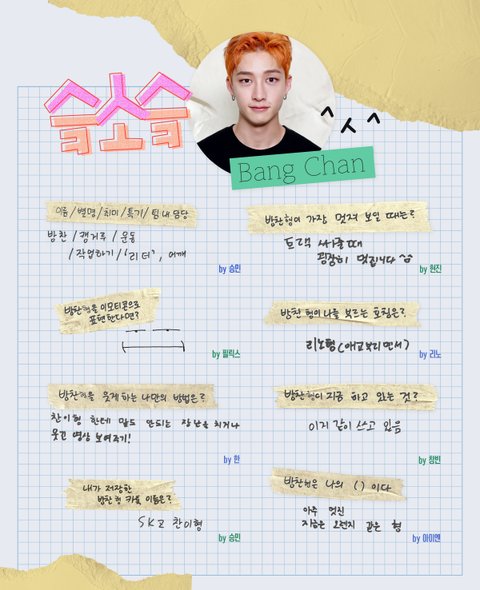 슼소슼
^ㅅ^
Bang Chan
이름/별명/취미/특기/팀 내 담당
방찬 / 캥거루 / 운동
/작업하기/'리더', 어깨
by 승민
방찬 형이 가장 멋져 보일 때는?
트랙 써올때
굉장히 멋집니다
by 현진
방찬 형을 이모티콘으로
표현한다면?
by 필릭스
방찬 형이 나를 부르는 호칭은?
리노형(애교부리면서)
by 리노
방찬 형을 웃게 하는 나만의 방법은?
찬이형 한테 말도 안되는 장난을 치거나
웃긴 영상 보여주기!
by 한
방찬 형이 지금 하고 있는 것?
이거 같이 쓰고 있음
by 창빈
내가 저장한
방찬 형 카톡 이름은?
SKZ 찬이형
by 승민
방찬 형은 나의 ( ) 이다
아주 멋진
지금은 오렌지 같은 형
by 아이엔